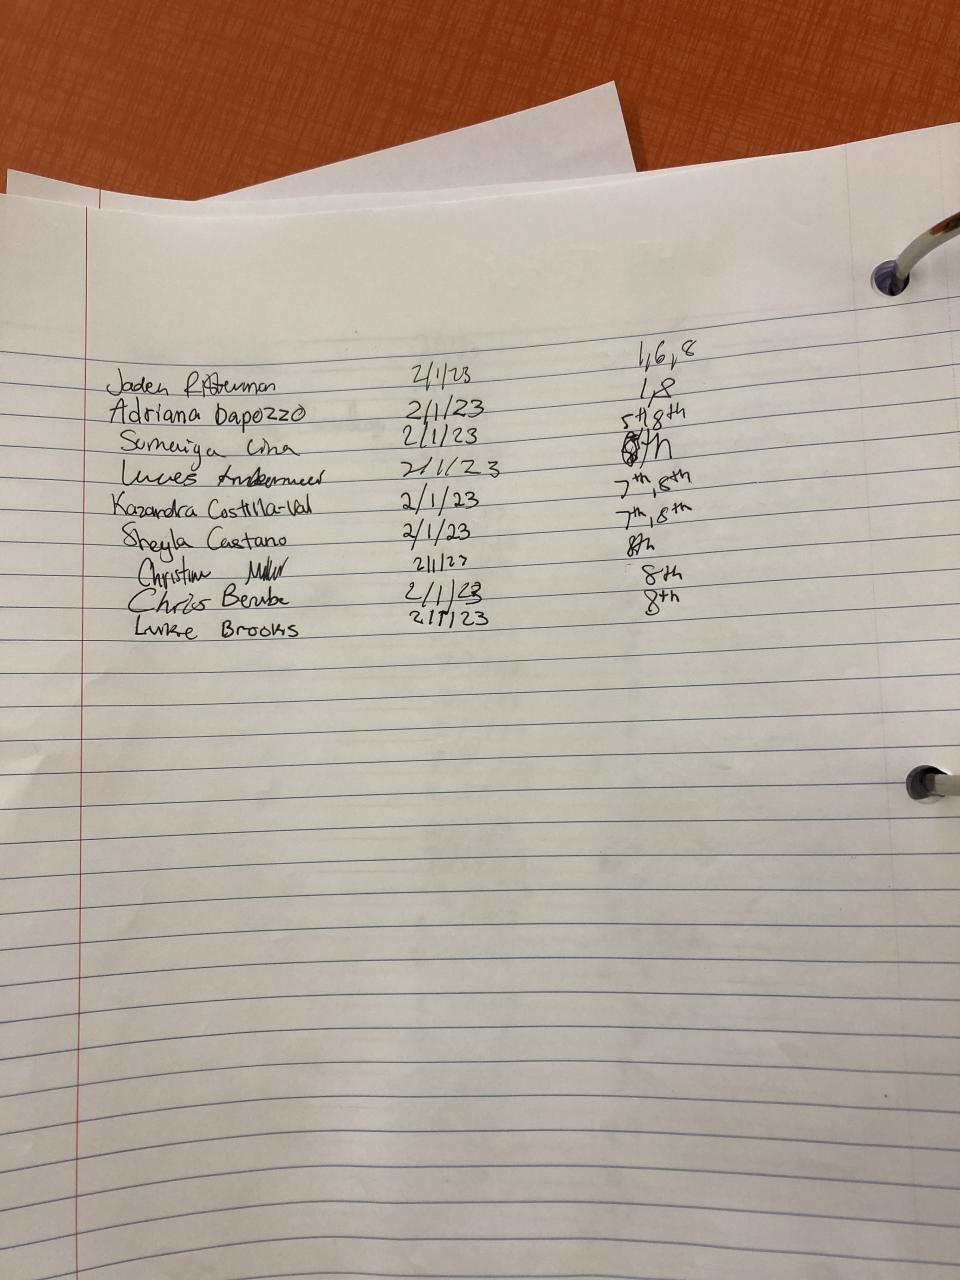 Jaden Ritterman 2/1/23 1,6,8
Adriana Dapozzo 2/1/23 1,8
Sumaiya 2/1/23 5th,8th
Lucas 2/1/23 8th
Kazandra Costilla-Val 2/1/23 7th,8th
Sheyla Caetano 2/1/23 7th,8th
Christine Miller 2/1/23 8th
Chris Berube 2/1/23 8th
Luke Brooks 2/1/23 8th